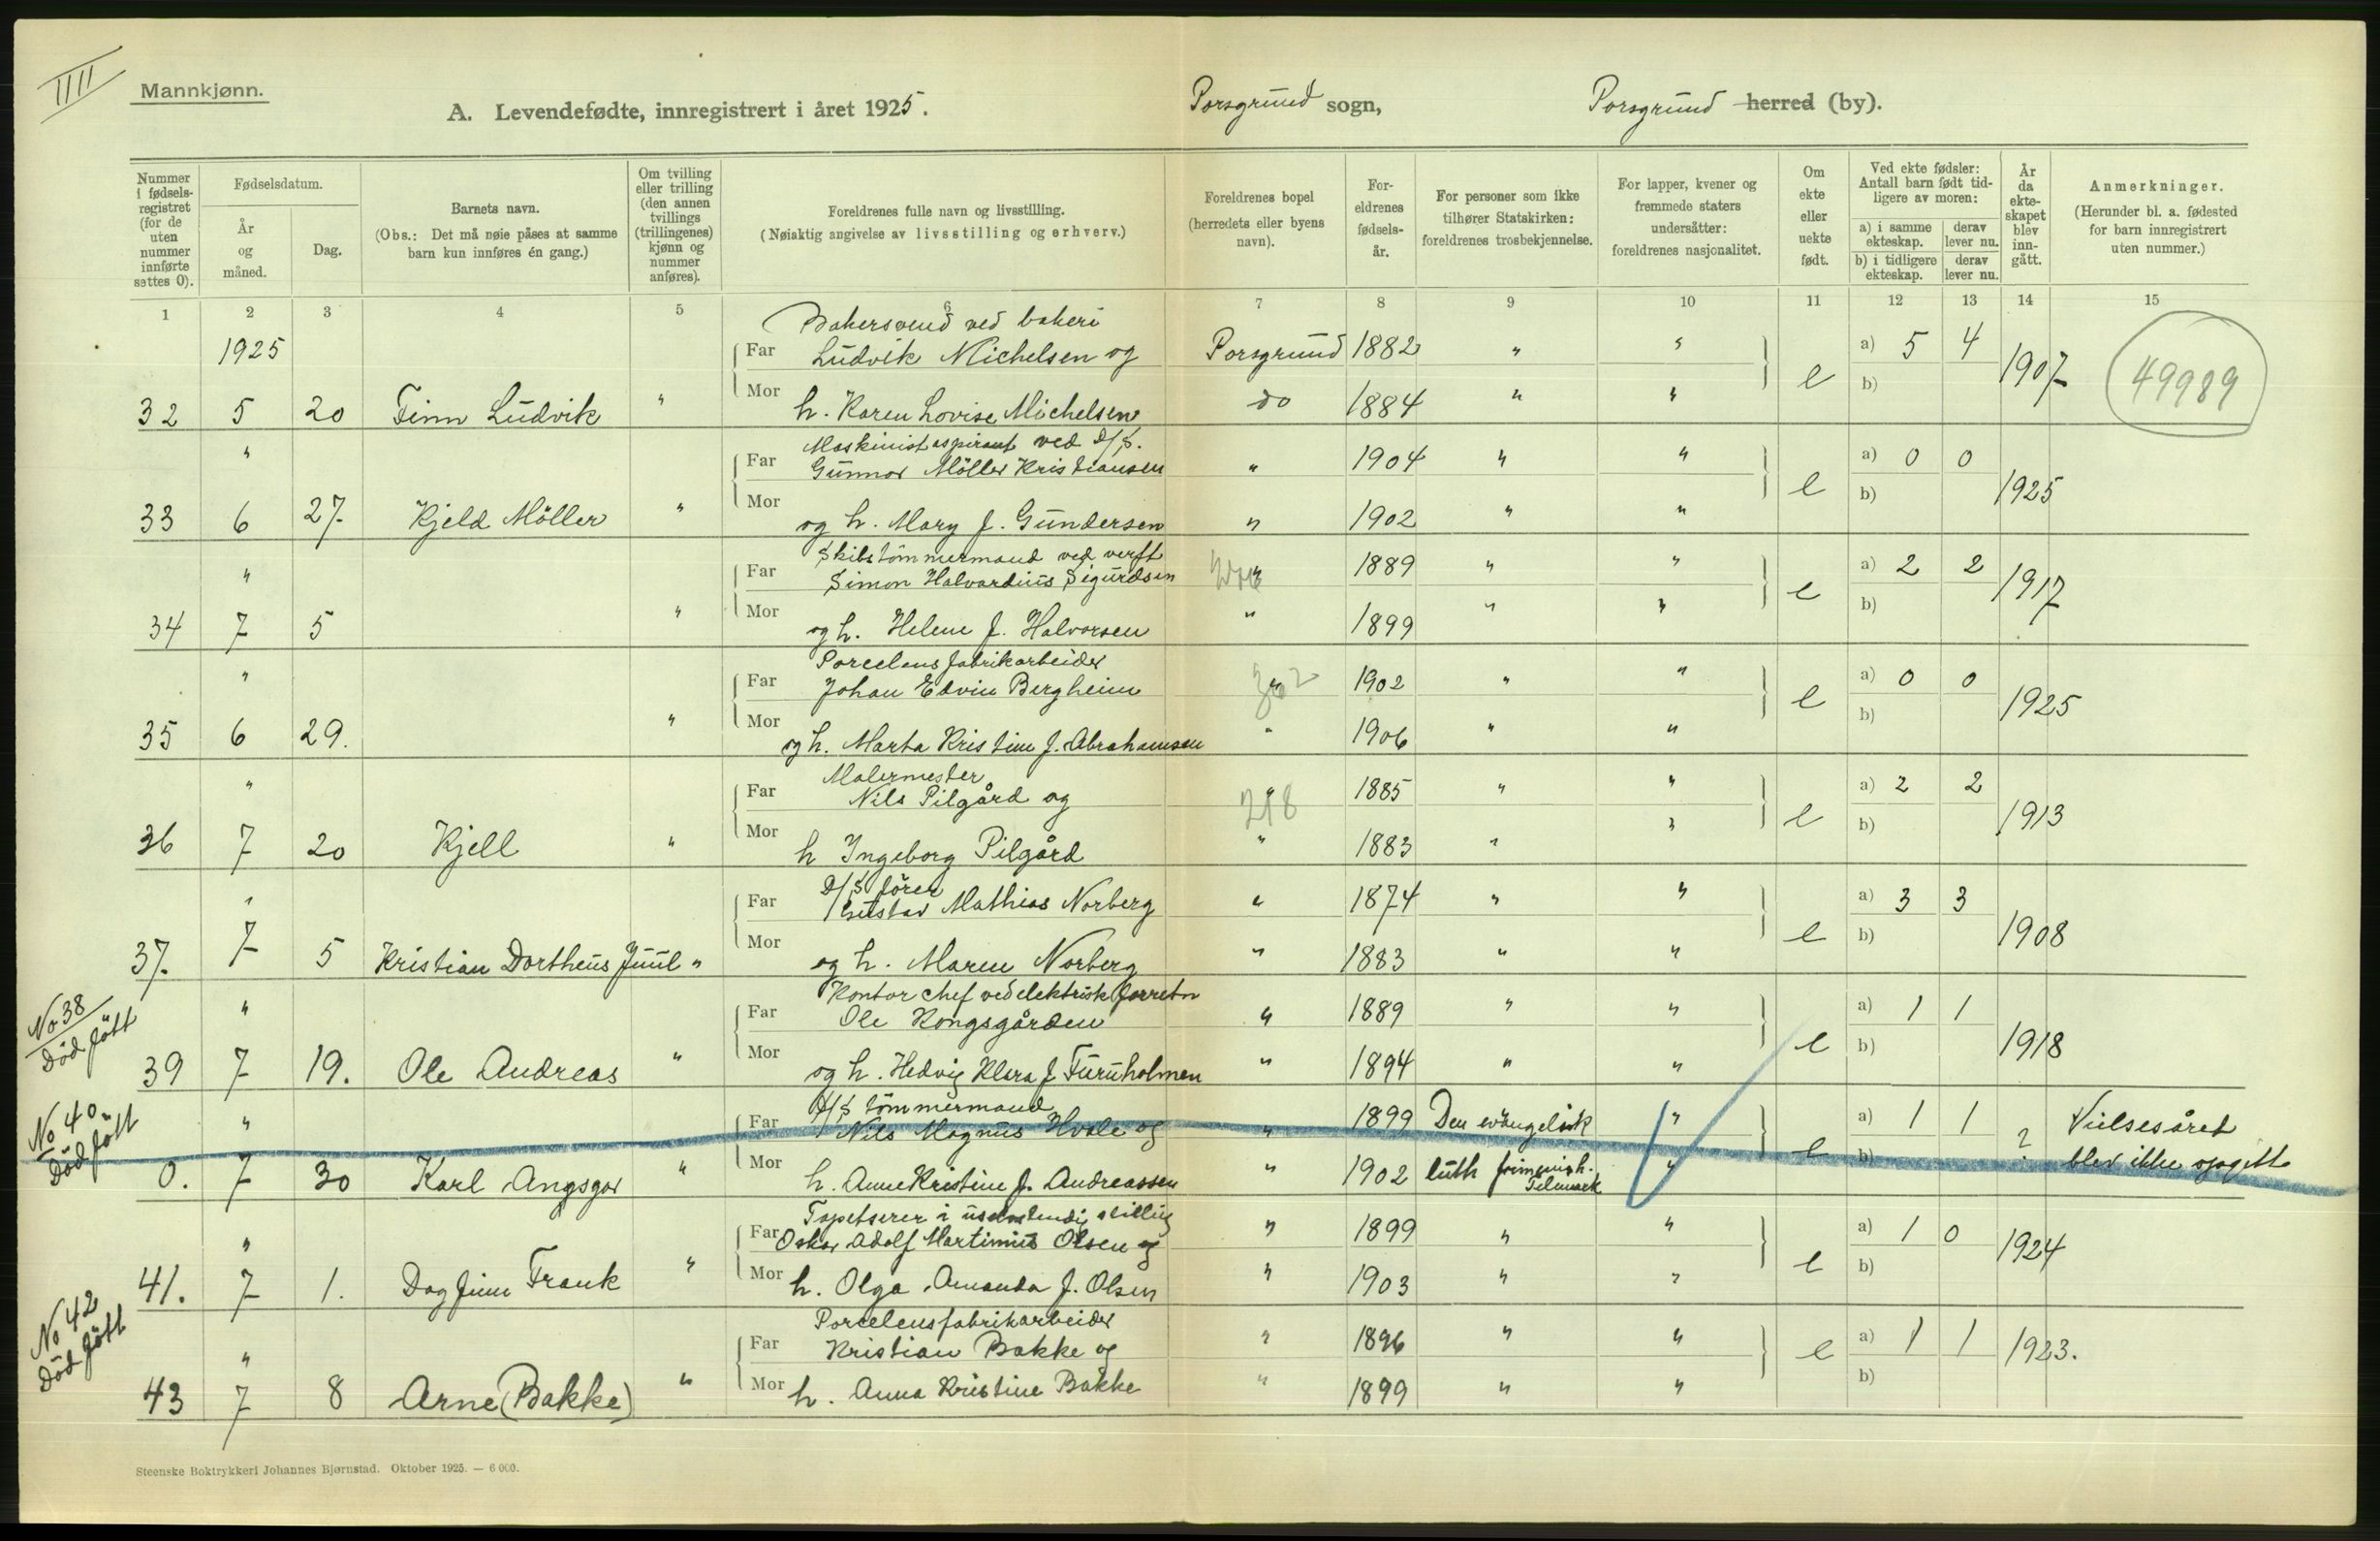 IIII
Mannkjønn.
A. Levendefødte, innregistrert i året 1925.
Porsgrund sogn,
Porsgrund herred (by).
Nummer i fødsels-registret (for de uten nummer innførte settes 0).
Fødselsdatum.
År og måned.
Dag.
Barnets navn.
(Obs.: Det må nøie påses at samme barn kun innføres én gang.)
Om tvilling eller trilling (den annen tvillings (trillingenes) kjønn og nummer anføres).
Foreldrenes fulle navn og livsstilling.
(Nøiaktig angivelse av livsstilling og erhverv.)
Foreldrenes bopel (herredets eller byens navn).
For-eldrenes fødsels-år.
For personer som ikke tilhører Statskirken: foreldrenes trosbekjennelse.
For lapper, kvener og fremmede staters undersåtter: foreldrenes nasjonalitet.
Om ekte eller uekte født.
Ved ekte fødsler: Antall barn født tid-ligere av moren:
a) i samme ekteskap. derav lever nu.
b) i tidligere ekteskap. derav lever nu.
År da ekte-skapet blev inn-gått.
Anmerkninger.
(Herunder bl. a. fødested for barn innregistrert uten nummer.)
1 2 3 4 5 6 7 8 9 10 11 12 13 14 15
Bakersvend ved bakeri
1925 Far Ludvik Michelsen og Porsgrund 1882 " " a) 5 4
32 5 20 Finn Ludvik " Mor h. Karen Lovise Michelsen do 1884 " " e b) 1907 49989
Maskinistaspirant ved D/S.
" Far Gunnar Möller Kristiansen " 1904 " " a) 0 0
33 6 27 Kjeld Möller " Mor og h. Mary f. Gundersen " 1902 " " e b) 1925
Skibstömmermand ved verft
" Far Simon Halvardius Sigurdsen " 1889 " " a) 2 2
34 7 5 " Mor og h. Helene f. Halvorsen " 1899 " " e b) 1917
Porcelensfabrikarbeider
" Far Johan Edvin Bergheim " 1902 " " a) 0 0
35 6 29. " Mor og h. Marta Kristine f. Abrahamsen " 1906 " " e b) 1925
Malermester
" Far Nils Pilgård og " 1885 " " a) 2 2
36 7 20 Kjell " Mor h Ingeborg Pilgård " 1883 " " e b) 1913
D/S förer
" Far Gustav Mathias Norberg " 1874 " " a) 3 3
37. 7 5 Kristian Dortheus Juul " Mor og h. Maren Norberg " 1883 " " e b) 1908
No 38
Död födt
Kontorchef ved elektrisk forretn
" Far Ole Kongsgården " 1889 " " a) 1 1
39 7 19. Ole Andreas " Mor og h. Hedvig Klara f Furuholmen " 1894 " " e b) 1918
No 40
Död födt
D/S tömmermand
" Far Nils Magnus Hvale og " 1899 Den evangelisk " a) 1 1 Vielsesåret
0. 7 30 Karl Angsgar " Mor h. Anne Kristine f. Andreassen " 1902 luth frimenigh. Telemark " e b) ? blev ikke opgitt
Tapetserer i uselvstendig stilling
" Far Oskar Adolf Martinius Olsen og " 1899 " " a) 1 0
41. 7 1. Dagfinn Frank " Mor h. Olga Amanda f. Olsen " 1903 " " e b) 1924
No 42
Död födt
Porcelensfabrikarbeider
" Far Kristian Bakke og " 1896 " " a) 1 1
43 7 8 Arne (Bakke) " Mor h. Anna Kristine Bakke " 1899 " " e b) 1923.
Steenske Boktrykkeri Johannes Bjørnstad. Oktober 1925. — 6 000.